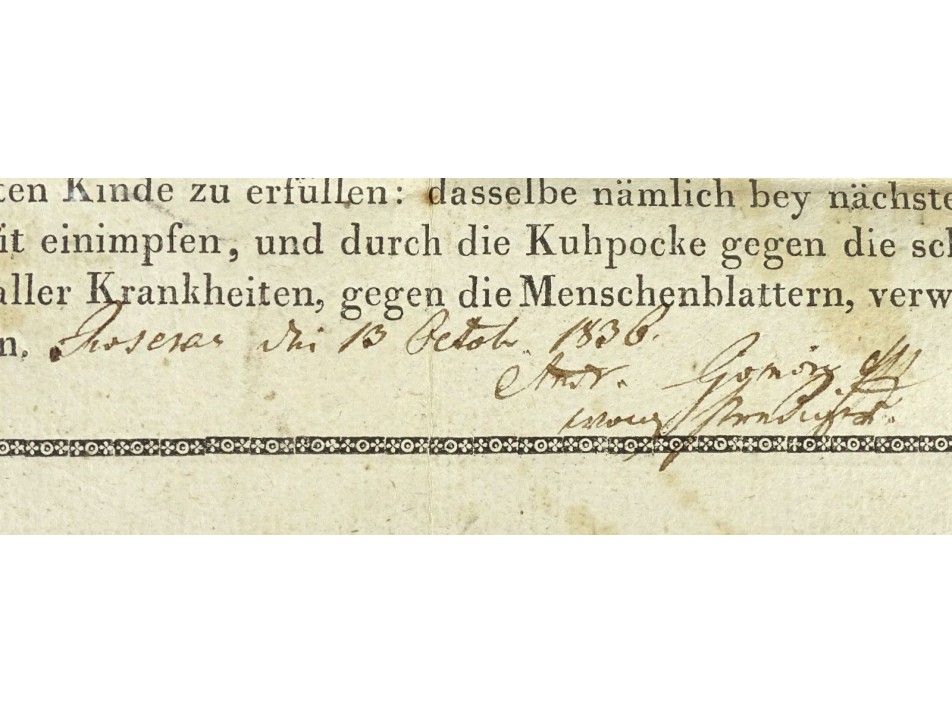 ten Kinde zu erfüllen: dasselbe nämlich bey nächste
it einimpfen, und durch die Kuhpocke gegen die sch
aller Krankheiten, gegen die Menschenblattern, verw
n. den 13 Octob. 1836.
Andr.